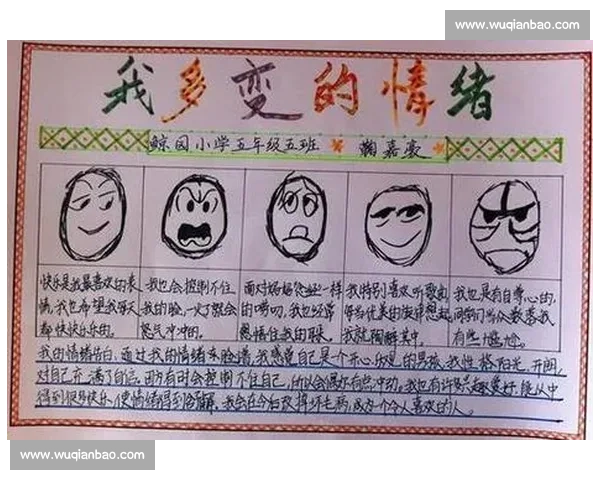 www.wuqianbao.com
我多变的情绪
鲸园小学五年级五班 鞠嘉豪
快乐是我最喜欢的表
情,我也希望我每天
都快快乐乐的。
我也会控制不住
我的脸,一火了就会
怒气冲冲的。
面对妈妈炮弹一样
的唠叨,我也经常
愁情住我的眼。
我特别喜欢听歌曲
每当优美的旋律想起
我就陶醉其中。
我也是有自尊心的,
同学们当众数落我
有些尴尬。
我的情绪告白:通过我的情绪来脸谱,我感觉自己是个开心乐观的男孩,我性格阳光,开朗,
对自己充满了自信。因为有时会控制不住自己,所以会偶尔有点冲动。我也有许多兴趣爱好,能从中
得到很多快乐,使情绪得到缓解,我会在今后改掉坏毛病,成为个令人喜欢的人。
www.wuqianbao.com